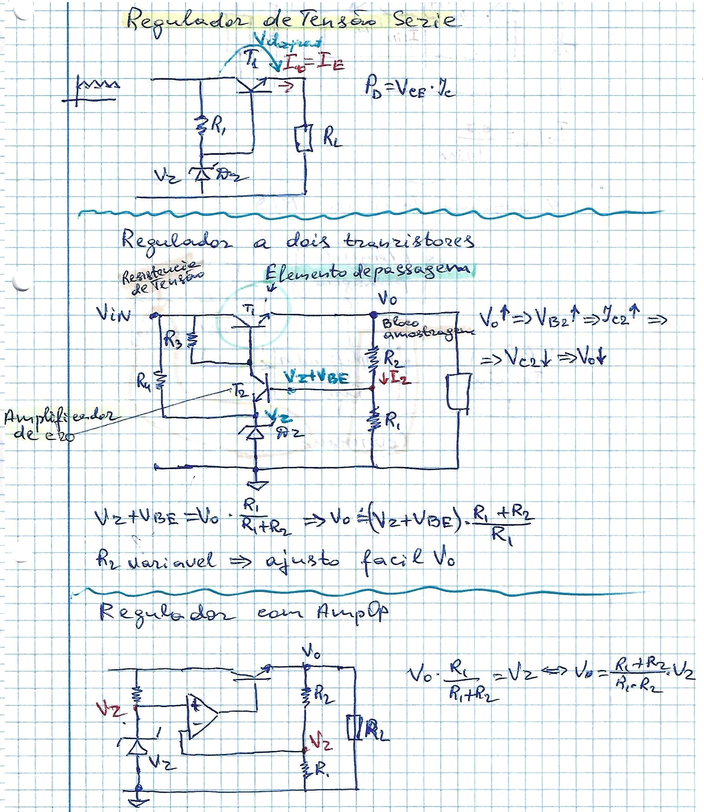 Regulador de Tensão Serie
T1 I0=IE
PD=VCE·IC
R1
RL
VZ DZ
Regulador a dois tranzistores
Resistencia
de Tensão
Elemento de passagem
VIN
T1
V0
Bloco
amostragem
V0↑⇒VB2↑⇒IC2↑⇒
⇒VC2↓⇒V0↓
R3
R2
R4
T2
VZ+VBE
↓I2
Amplificador
de erro
VZ
DZ
R1
VZ+VBE=V0·R1/(R1+R2) ⇒ V0=(VZ+VBE)·(R1+R2)/R1
R2 variavel ⇒ ajusto facil V0
Regulador com AmpOp
V0
V0·R1/(R1+R2)=VZ ⇔ V0=(R1+R2)/(R1·R2)·VZ
R2
VZ
+
-
RL
VZ
VZ
R1